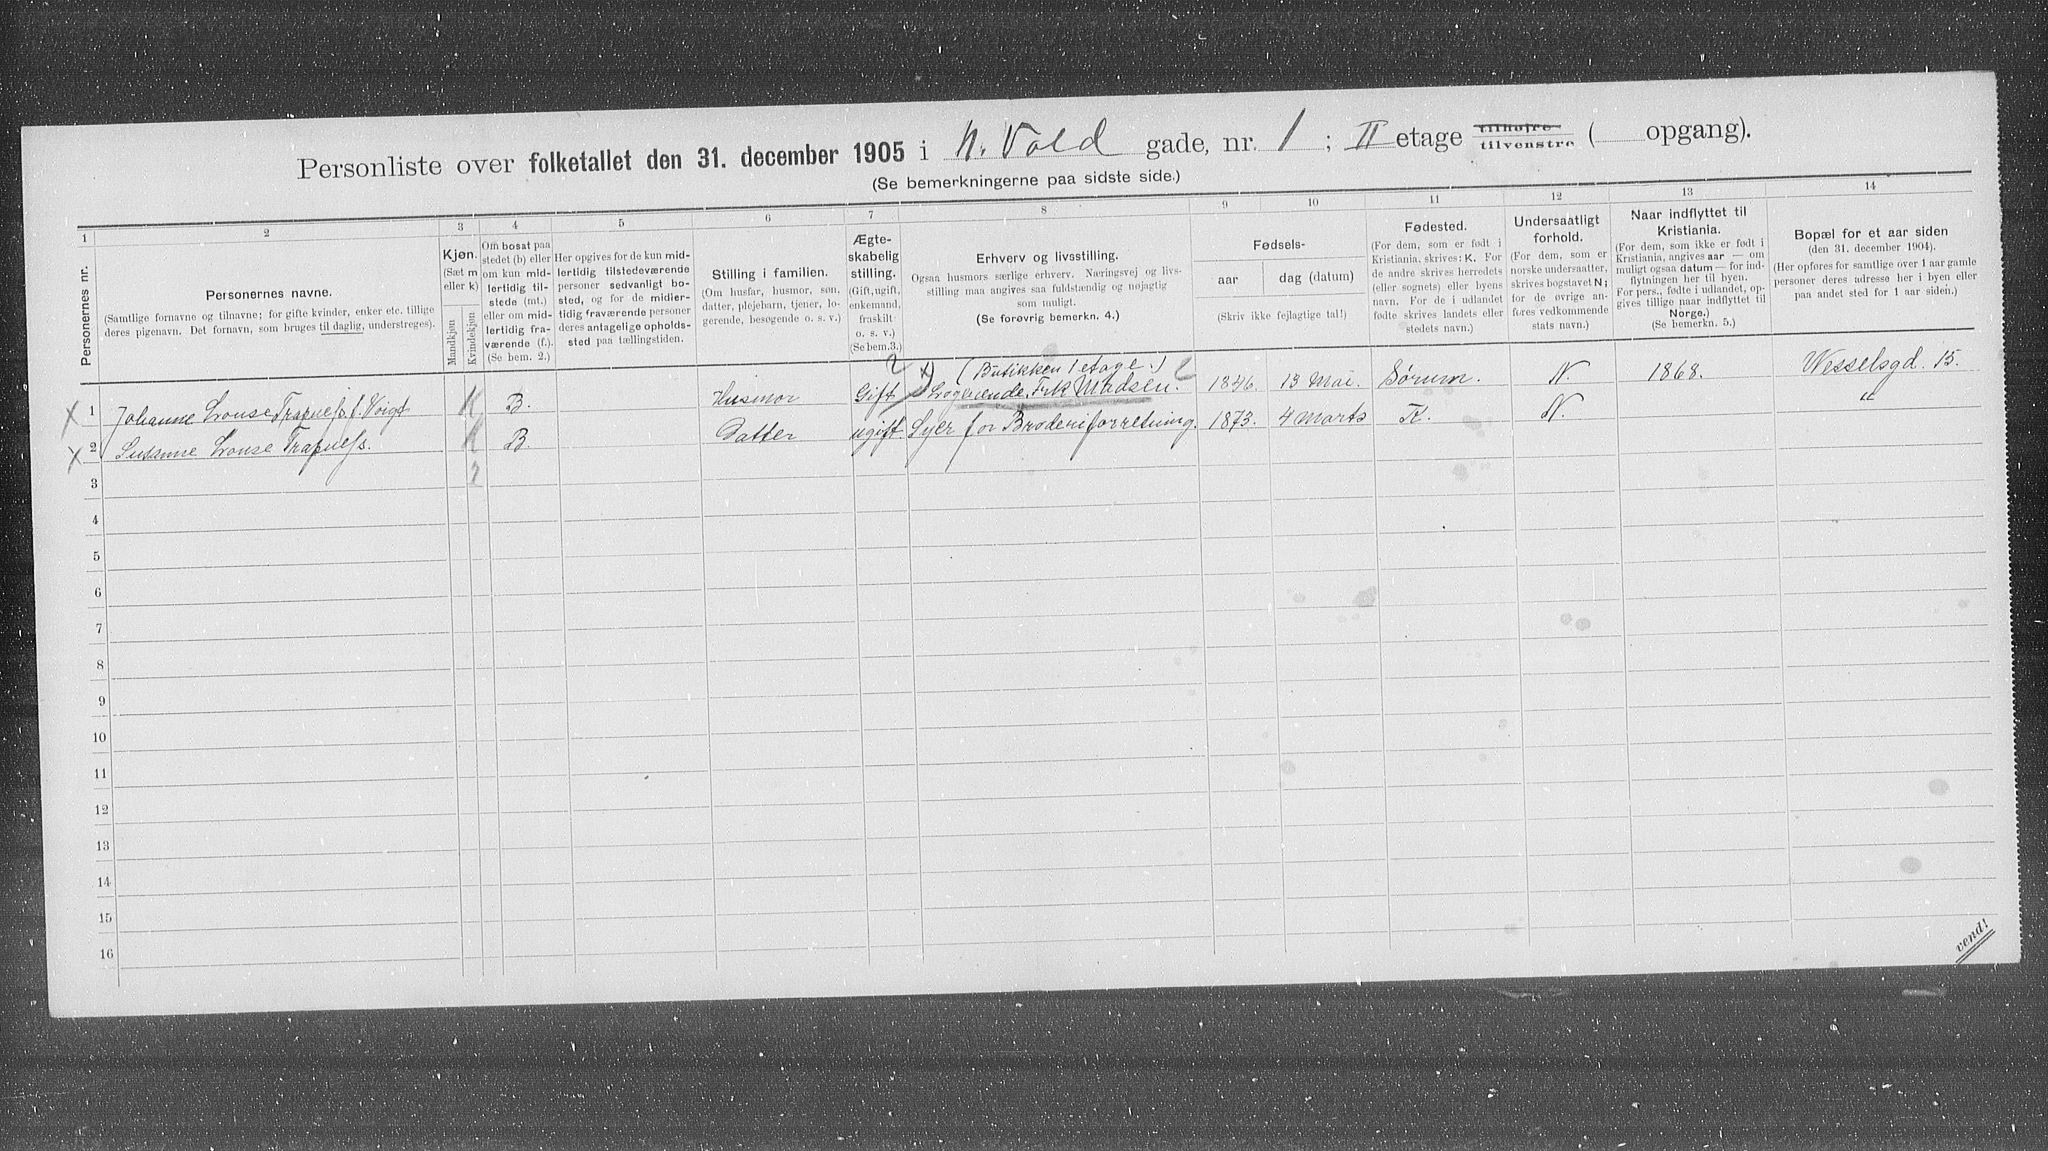 Personliste over folketallet den 31. december 1905 i N. Vold gade, nr. 1; II etage tilhøjre tilvenstre ( opgang).
(Se bemerkningerne paa sidste side.)
1 2 3 4 5 6 7 8 9 10 11 12 13 14
Personernes nr.
Personernes navne.
(Samtlige fornavne og tilnavne; for gifte kvinder, enker etc. tillige
deres pigenavn. Det fornavn, som bruges til daglig, understreges).
Kjøn.
(Sæt m
eller k)
Mandkjøn
Kvindekjøn
Om bosat paa
stedet (b) eller
om kun mid-
lertidig til-
stede (mt.)
eller om mid-
lertidig fra-
værende (f.).
(Se bem. 2.)
Her opgives for de kun mid-
lertidig tilstedeværende
personer sedvanligt bo-
sted, og for de midler-
tidig fraværende personer
deres antagelige opholds-
sted paa tællingstiden.
Stilling i familien.
(Om husfar, husmor, søn,
datter, plejebarn, tjener, lo-
gerende, besøgende o. s. v.)
Ægte-
skabelig
stilling.
(Gift, ugift,
enkemand,
fraskilt
o. s. v.)
(Se bem.3.)
Erhverv og livsstilling.
Ogsaa husmors særlige erhverv. Næringsvej og livs-
stilling maa angives saa fuldstændig og nøjagtig
som muligt.
(Se forøvrig bemerkn. 4.)
Fødsels-
aar
dag (datum)
(Skriv ikke fejlagtige tal!)
Fødested.
(For dem, som er født i
Kristiania, skrives: K. For
de andre skrives herredets
(eller sognets) eller byens
navn. For de i udlandet
fødte skrives landets eller
stedets navn.)
Undersaatligt
forhold.
(For dem, som er
norske undersaatter,
skrives bogstavet N;
for de øvrige an-
føres vedkommende
stats navn.)
Naar indflyttet til
Kristiania.
(For dem, som ikke er født i
Kristiania, angives aar — om
muligt ogsaa datum — for ind-
flytningen her til byen.
For pers., fødte i udlandet, op-
gives tillige naar indflyttet til
Norge.)
(Se bemerkn. 5.)
Bopæl for et aar siden
(den 31. december 1904).
(Her opføres for samtlige over 1 aar gamle
personer deres adresse her i byen eller
paa andet sted for 1 aar siden.)
2 x) (Butikken 1 etage.) 2
x 1 Johanne Louise Trapness f. Voigt K B. Husmor Gift Logerende, Frk Madsen. 1846. 13 Mai. Sørum. N. 1868. Wesselsgd. 15.
x 2 Susanne Louise Trapness. K B. Datter ugift. Syer for Broderiforretning. 1873. 4 Marts K. N. "
3 2
4
5
6
7
8
9
10
11
12
13
14
15
16
vend!